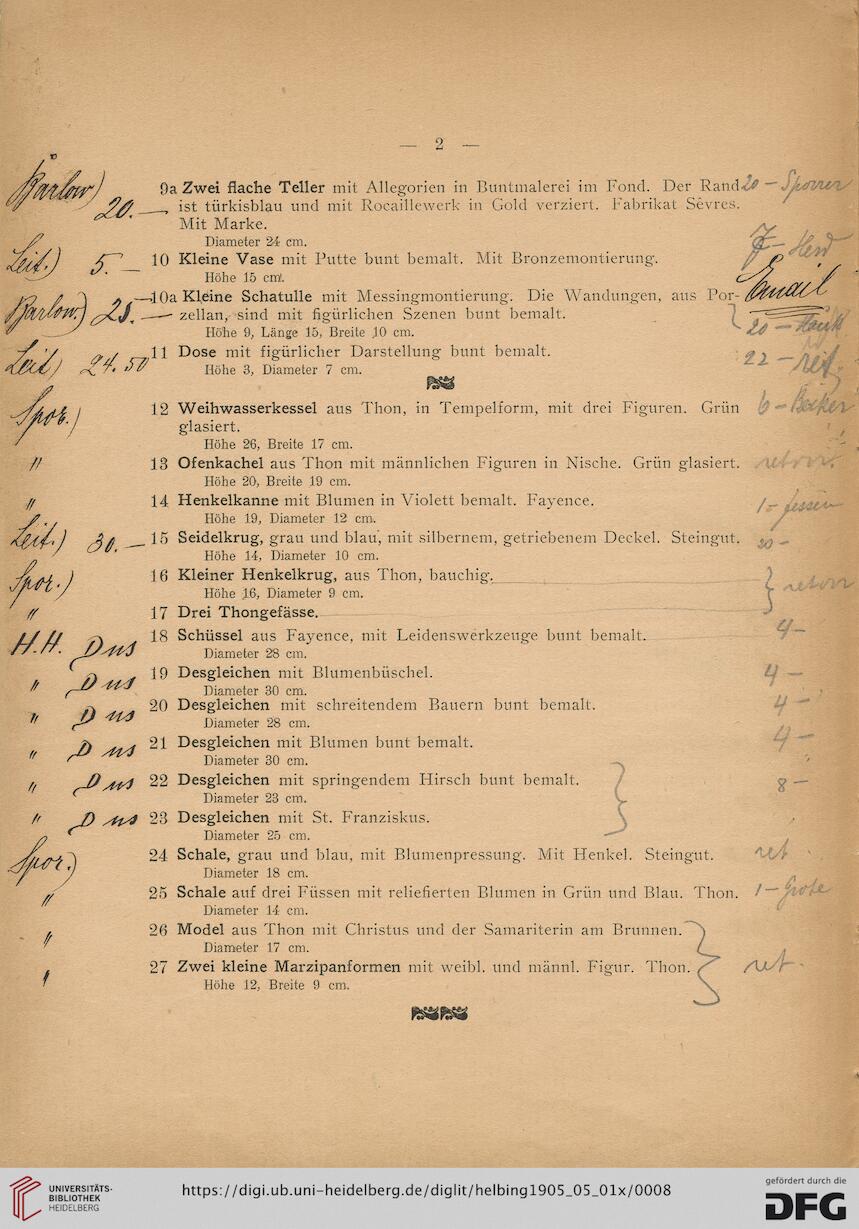 — 2 —
Barlow) 20.— 9a Zwei flache Teller mit Allegorien in Buntmalerei im Fond. Der Rand 20 – Sporrer
ist türkisblau und mit Rocaillewerk in Gold verziert. Fabrikat Sèvres.
Mit Marke.
Diameter 24 cm.
Leit.) 5.— 10 Kleine Vase mit Putte bunt bemalt. Mit Bronzemontierung. 7– Herd
Höhe 15 cm.
Barlow.) 10a Kleine Schatulle mit Messingmontierung. Die Wandungen, aus Por- Email
zellan, sind mit figürlichen Szenen bunt bemalt. 20 –
Höhe 9, Länge 15, Breite 10 cm.
Leit) 24.50 11 Dose mit figürlicher Darstellung bunt bemalt. 22 –
Höhe 3, Diameter 7 cm.
Spor.) 12 Weihwasserkessel aus Thon, in Tempelform, mit drei Figuren. Grün 6 – Becker
glasiert.
Höhe 26, Breite 17 cm.
" 13 Ofenkachel aus Thon mit männlichen Figuren in Nische. Grün glasiert. retour.
Höhe 20, Breite 19 cm.
" 14 Henkelkanne mit Blumen in Violett bemalt. Fayence. 1–
Höhe 19, Diameter 12 cm.
Leit.) 30.— 15 Seidelkrug, grau und blau, mit silbernem, getriebenem Deckel. Steingut. 30 –
Höhe 14, Diameter 10 cm.
Spor.) 16 Kleiner Henkelkrug, aus Thon, bauchig. retour
Höhe 16, Diameter 9 cm.
" 17 Drei Thongefässe.
H.H. D us 18 Schüssel aus Fayence, mit Leidenswerkzeuge bunt bemalt. 4–
Diameter 28 cm.
" D us 19 Desgleichen mit Blumenbüschel. 4 –
Diameter 30 cm.
" D us 20 Desgleichen mit schreitendem Bauern bunt bemalt. 4 –
Diameter 28 cm.
" D us 21 Desgleichen mit Blumen bunt bemalt. 4–
Diameter 30 cm.
" D us 22 Desgleichen mit springendem Hirsch bunt bemalt. 8 –
Diameter 23 cm.
" D us 23 Desgleichen mit St. Franziskus.
Diameter 25 cm.
Spor.) 24 Schale, grau und blau, mit Blumenpressung. Mit Henkel. Steingut. ret
Diameter 18 cm.
" 25 Schale auf drei Füssen mit reliefierten Blumen in Grün und Blau. Thon. 1– Grote
Diameter 14 cm.
" 26 Model aus Thon mit Christus und der Samariterin am Brunnen.
Diameter 17 cm.
" 27 Zwei kleine Marzipanformen mit weibl. und männl. Figur. Thon. ret.
Höhe 12, Breite 9 cm.
UNIVERSITÄTS-
BIBLIOTHEK
HEIDELBERG
https://digi.ub.uni-heidelberg.de/diglit/helbing1905_05_01x/0008
gefördert durch die
DFG